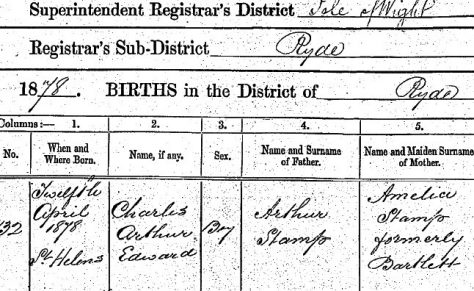 Superintendent Registrar's District Isle of Wight
Registrar's Sub-District Ryde
1878. BIRTHS in the District of Ryde
Columns:— 1. 2. 3. 4. 5.
No. When and Where Born. Name, if any. Sex. Name and Surname of Father. Name and Maiden Surname of Mother.
132 Twelfth April 1878 St. Helens Charles Arthur Edward Boy Arthur Stamp Amelia Stamp formerly Bartlett